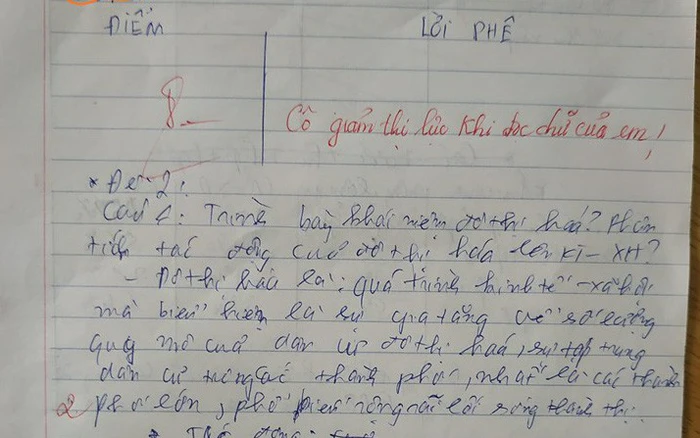 ĐIỂM LỜI PHÊ
8-
Cô giảm thị lực khi đọc chữ của em!
* Đề 2:
Câu 1: Trình bày khái niệm đô thị hoá? Phân
tích tác động của đô thị hóa lên KT-XH?
- Đô thị hóa là: quá trình kinh tế -xã hội
mà biểu hiện là sự gia tăng về số lượng
quy mô của dân cư đô thị hoá, sự tập trung
dân cư trong các thành phố, nhất là các thành
2 phố lớn, phổ biến rộng rãi lối sống thành thị.